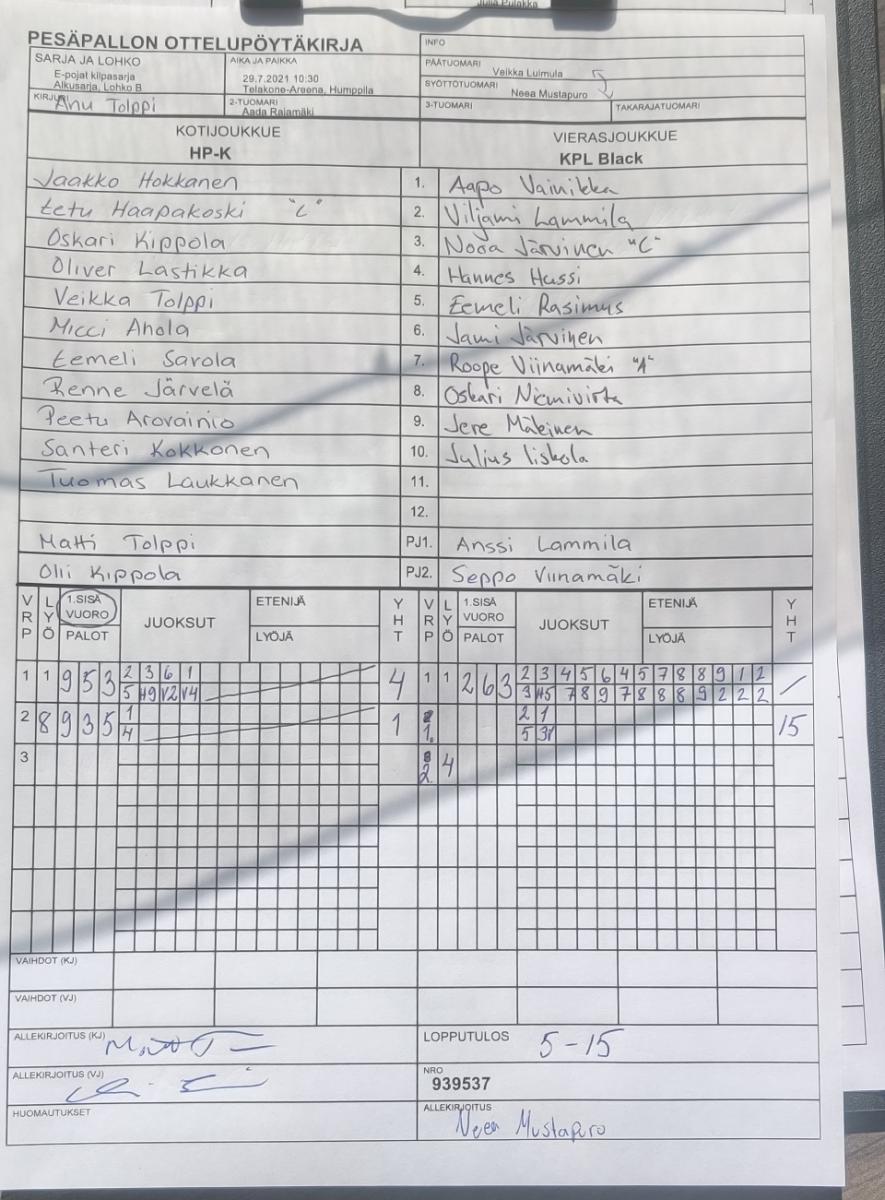 Julia Pulakka
PESÄPALLON OTTELUPÖYTÄKIRJA
INFO
SARJA JA LOHKO
E-pojat kilpasarja
Alkusarja, Lohko B
AIKA JA PAIKKA
29.7.2021 10:30
Telakone-Areena, Humppila
PÄÄTUOMARI
Veikka Luimula
SYÖTTÖTUOMARI
Neea Mustapuro
KIRJURI
Anu Tolppi
2-TUOMARI
Aada Rajamäki
3-TUOMARI
TAKARAJATUOMARI
KOTIJOUKKUE
HP-K
VIERASJOUKKUE
KPL Black
Jaakko Hokkanen 1. Aapo Vainikka
Eetu Haapakoski "C" 2. Viljami Lammila
Oskari Kippola 3. Nooa Järvinen "C"
Oliver Lastikka 4. Hannes Hussi
Veikka Tolppi 5. Eemeli Rasimus
Micci Ahola 6. Jami Järvinen
Eemeli Sarola 7. Roope Viinamäki "A"
Renne Järvelä 8. Oskari Niemivirta
Peetu Arovainio 9. Jere Mäkinen
Santeri Kokkonen 10. Julius Iiskola
Tuomas Laukkanen 11.
12.
Matti Tolppi PJ1. Anssi Lammila
Olli Kippola PJ2. Seppo Viinamäki
VRP LYÖ 1.SISÄ VUORO PALOT JUOKSUT ETENIJÄ LYÖJÄ YHT VRP LYÖ 1.SISÄ VUORO PALOT JUOKSUT ETENIJÄ LYÖJÄ YHT
1 1 9 5 3 2 3 6 1 4 1 1 2 6 3 2 3 4 5 6 4 5 7 8 8 9 1 2 /
5 H9 V2 V4 3 H5 7 8 9 7 8 8 8 9 2 2 2
2 8 9 3 5 1 1 1. 2 1 15
4 5 31
3 2 4
VAIHDOT (KJ)
VAIHDOT (VJ)
ALLEKIRJOITUS (KJ)
LOPPUTULOS 5-15
ALLEKIRJOITUS (VJ)
NRO
939537
HUOMAUTUKSET
ALLEKIRJOITUS
Neea Mustapuro